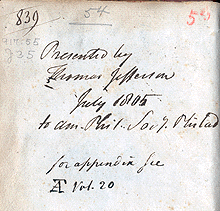 839
54
5
917.55
J35
Presented by
Thomas Jefferson
July 1805
to Am. Phil. Socy. Philad
for appendix see
Vol. 20